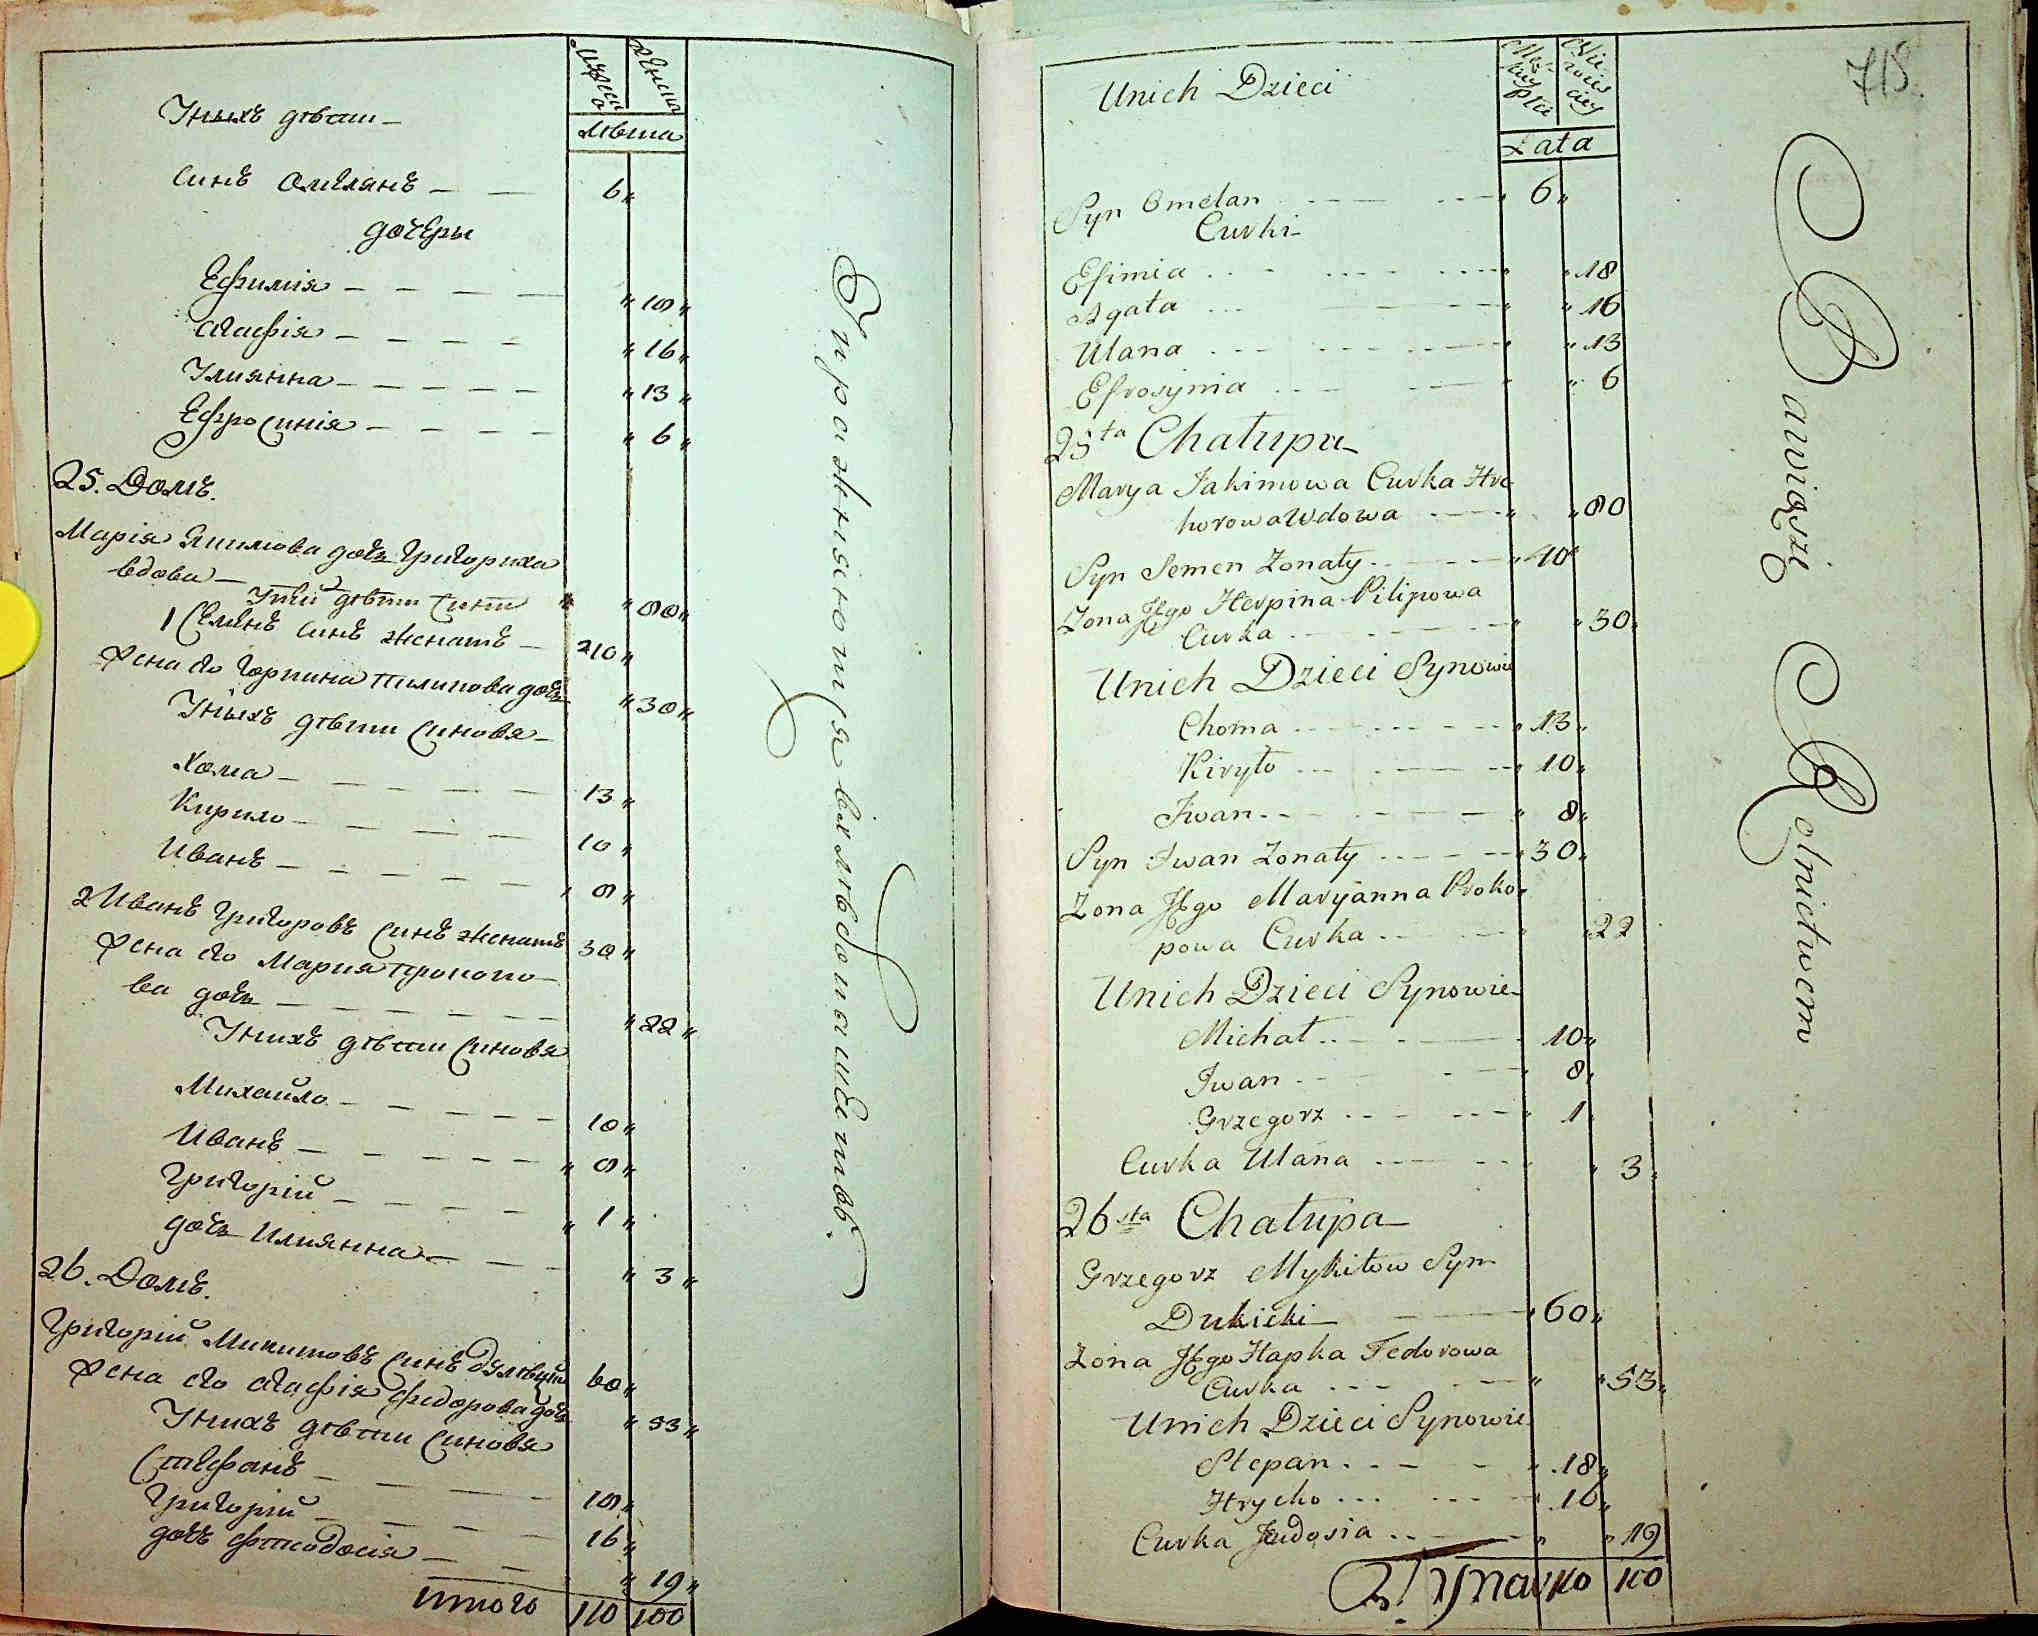 Мужеска
Женска
Лѣта
У ныхъ дѣти
синъ Омелянъ 6
дочеры
Ефимія 18
Агафія 16
Улиянна 13
Ефросинія 6
25. Домъ.
Марія Якимова дочь Григориха
вдова 80
У неи дѣти сини
1 Семенъ синъ женатъ 40
Жена его Горпина Пилипова дочь 30
У ныхъ дѣти синовя
Хома 13
Кирило 10
Иванъ 8
2 Иванъ Григоровъ синъ женатъ 30
Жена его Мария Прокопо-
ва дочь 22
У нихъ дѣти синовя
Михайло 10
Иванъ 8
Григорій 1
дочь Илиянна 3
26. Домъ.
Григорій Микитовъ синъ 60
Жена его Агафія Федорова дочь 53
У нихъ дѣти синовя
Стефанъ 18
Григорій 16
дочь Феодосія 19
Итого 110 100
Упражняющияся в хлѣбопашествѣ.
718.
Męskiey płci
Niewieściey
Lata
Unich Dzieci
Syn Omelan 6
Curki
Efimia 18
Agata 16
Ulana 13
Efrosynia 6
25ta Chałupa
Marya Jakimowa Curka Hre
horowa Wdowa 80
Syn Semen Zonaty 40
Zona Jego Herpina Pilipowa
Curka 30
Unich Dzieci Synowie
Choma 13
Kiryło 10
Iwan 8
Syn Iwan Zonaty 30
Zona Jego Maryanna Proko-
powa Curka 22
Unich Dzieci Synowie
Michał 10
Iwan 8
Grzegorz 1
Curka Ulana 3
26sta Chałupa
Grzegorz Mykitow Syn
Dulicki 60
Zona Jego Hapka Fedorowa
Curka 53
Unich Dzieci Synowie
Stepan 18
Hrycko 16
Curka Jeudosia 19
110 100
Bawiący się Rolnictwem